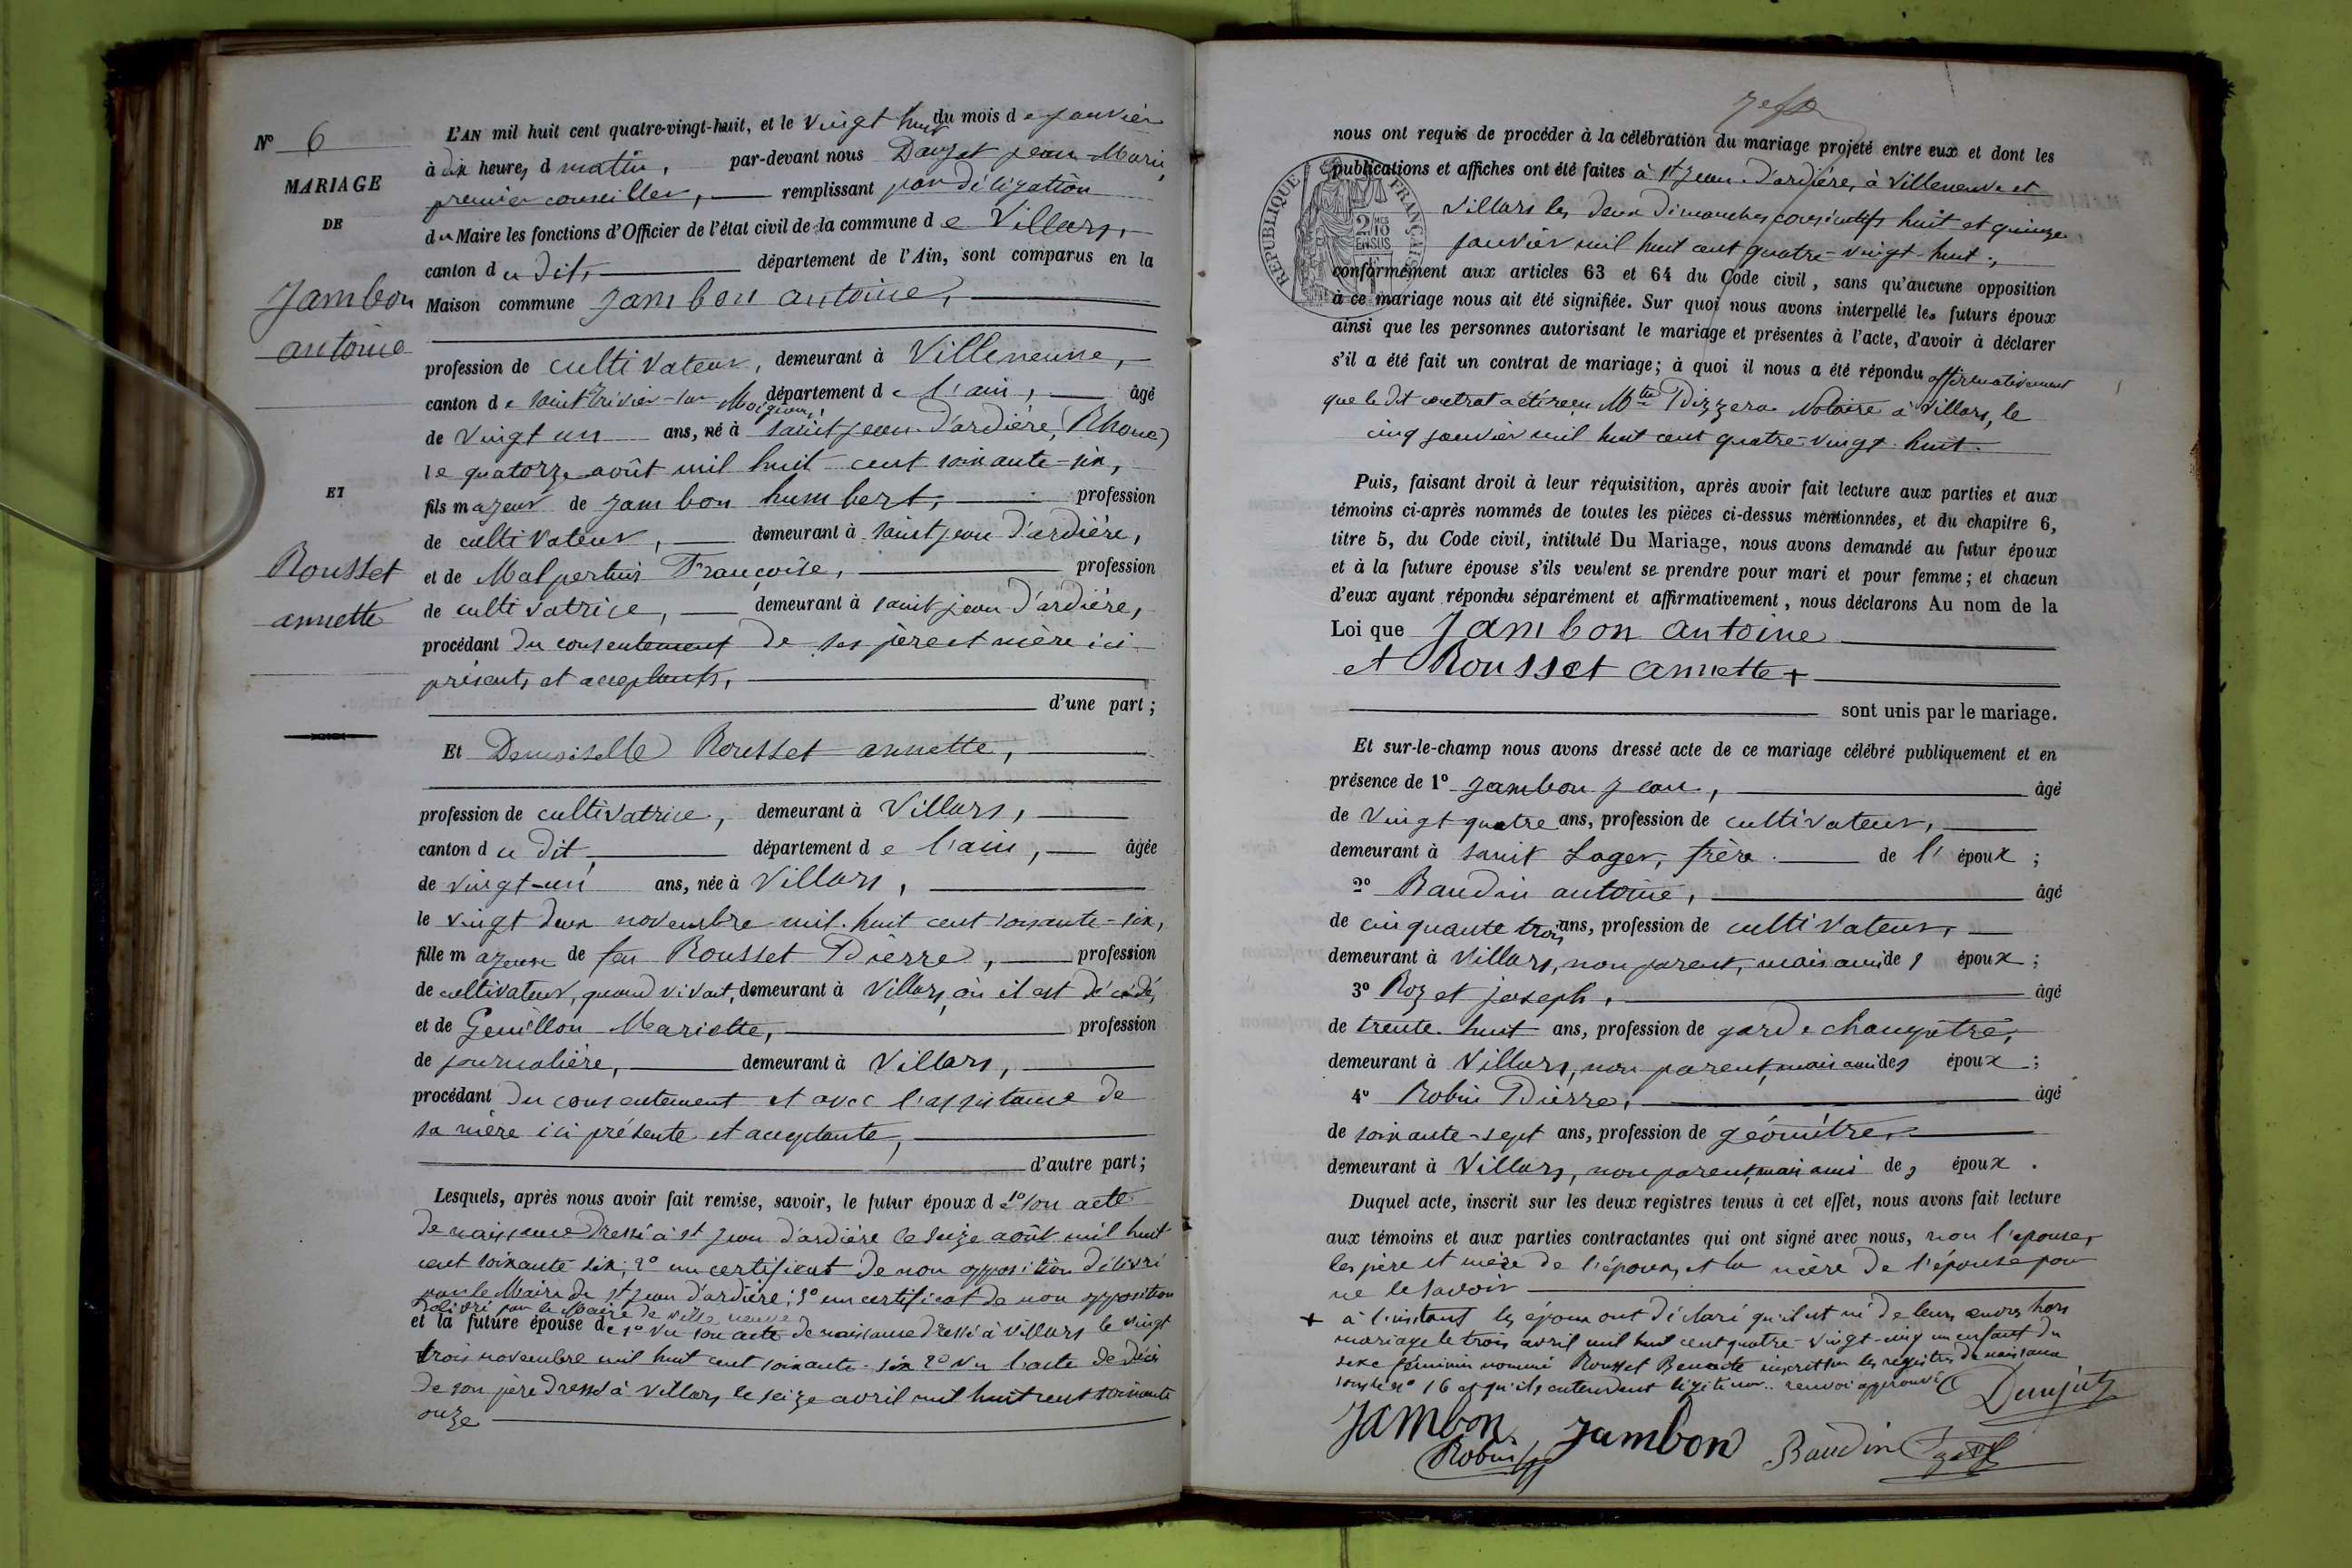 N° 6
MARIAGE
DE
Jambon
antoine
ET
Rousset
annette
L'AN mil huit cent quatre-vingt-huit, et le vingt huit du mois de janvier
à dix heures d matin, par-devant nous jean-Marie,
premier conseiller, remplissant par déligation
du Maire les fonctions d'Officier de l'état civil de la commune de Villars,
canton du dit, département de l'Ain, sont comparus en la
Maison commune Jambon antoine,
profession de cultivateur, demeurant à Villeneuve,
canton de saint trivier-sur-Moignans, département de l'ain, âgé
de vingt un ans, né à saint jean d'ardière, (Rhone)
le quatorze août mil huit cent soixante-six,
fils majeur de jambon humbert, profession
de cultivateur, demeurant à saint jean d'ardière,
et de Malpertuis Françoise, profession
de cultivatrice, demeurant à saint jean d'ardière,
procédant du consentement de ses père et mère ici
présents et acceptants,
d'une part;
Et Demoiselle Rousset annette,
profession de cultivatrice, demeurant à Villars,
canton du dit, département de l'ain, âgée
de vingt-un ans, née à Villars,
le vingt deux novembre mil huit cent soixante-six,
fille majeure de feu Rousset Pierre, profession
de cultivateur, quand vivait, demeurant à Villars, où il est décédé,
et de Genillon Mariette, profession
de journalière, demeurant à Villars,
procédant du consentement et avec l'assistance de
sa mère ici présente et acceptante,
d'autre part;
Lesquels, après nous avoir fait remise, savoir, le futur époux de 1° son acte
de naissance dressé à st jean d'ardière le seize août mil huit
cent soixante six; 2° un certificat de non opposition délivré
par le Maire de st jean d'ardière; 3° un certificat de non opposition
délivré par le Maire de Ville neuve
et la future épouse de 1° vu son acte de naissance dressé à Villars le vingt
trois novembre mil huit cent soixante-six 2° vu l'acte de décès
de son père dressé à Villars le seize avril mil huit cent soixante
onze
nous ont requis de procéder à la célébration du mariage projeté entre eux et dont les
publications et affiches ont été faites à st jean d'ardière, à Villeneuve et
Villars les deux dimanches consécutifs huit et quinze
janvier mil huit cent quatre-vingt-huit,
RÉPUBLIQUE FRANÇAISE
2/10 MES EN SUS
conformément aux articles 63 et 64 du Code civil, sans qu'aucune opposition
à ce mariage nous ait été signifiée. Sur quoi nous avons interpellé les futurs époux
ainsi que les personnes autorisant le mariage et présentes à l'acte, d'avoir à déclarer
s'il a été fait un contrat de mariage; à quoi il nous a été répondu affirmativement
que le dit contrat a été reçu Mtre Pizzera Notaire à Villars, le
cinq janvier mil huit cent quatre-vingt-huit.
Puis, faisant droit à leur réquisition, après avoir fait lecture aux parties et aux
témoins ci-après nommés de toutes les pièces ci-dessus mentionnées, et du chapitre 6,
titre 5, du Code civil, intitulé Du Mariage, nous avons demandé au futur époux
et à la future épouse s'ils veulent se prendre pour mari et pour femme; et chacun
d'eux ayant répondu séparément et affirmativement, nous déclarons Au nom de la
Loi que Jambon antoine
et Rousset annette +
sont unis par le mariage.
Et sur-le-champ nous avons dressé acte de ce mariage célébré publiquement et en
présence de 1° jambon jean, âgé
de vingt quatre ans, profession de cultivateur,
demeurant à saint Lager, frère de l'époux;
2° Baudin antoine, âgé
de cinquante trois ans, profession de cultivateur,
demeurant à Villars, non parent, mais ami des époux;
3° Rozet joseph, âgé
de trente huit ans, profession de garde champêtre,
demeurant à Villars, non parent, mais ami des époux;
4° Robin Pierre, âgé
de soixante-sept ans, profession de géomètre,
demeurant à Villars, non parent, mais ami des époux.
Duquel acte, inscrit sur les deux registres tenus à cet effet, nous avons fait lecture
aux témoins et aux parties contractantes qui ont signé avec nous, non l'épouse,
les père et mère de l'époux, et la mère de l'épouse pour
ne le savoir
+ à l'instant les époux ont déclaré qu'il est né de leurs œuvres hors
mariage le trois avril mil huit cent quatre-vingt-cinq un enfant du
sexe féminin nommé Rousset Benoite inscrit sur les registres de naissance
sous le n° 16 et qu'ils entendent légitimer. renvoi approuvé
Jambon Jambon Baudin
Robin